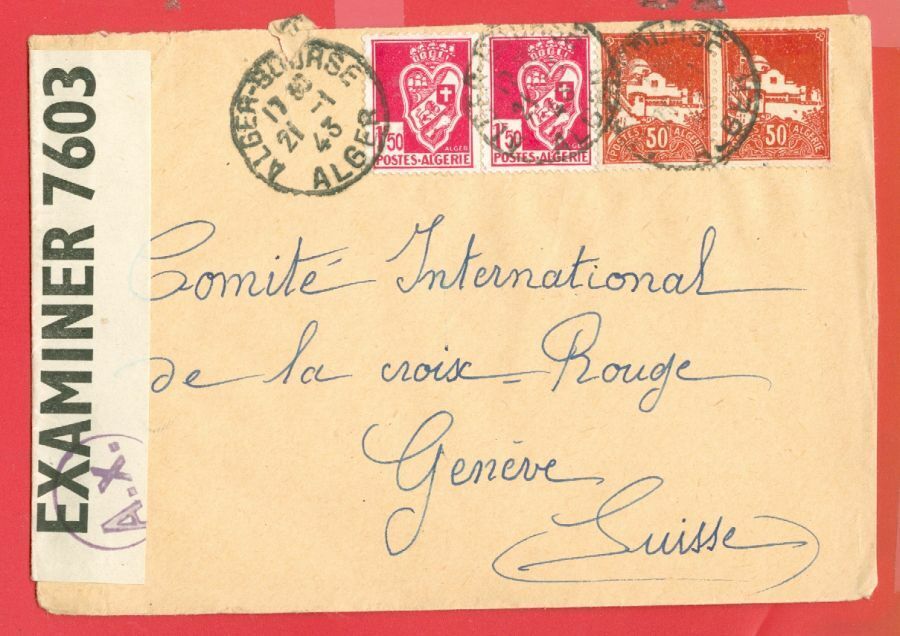 EXAMINER 7603
A.X.
ALGER-BOURSE
17
21 -1
43
ALGER
1F50
ALGER
POSTES-ALGERIE
1F50
ALGER
POSTES-ALGERIE
50c
POSTES ALGERIE
50c
Comité International
de la croix-Rouge
Genève
Suisse